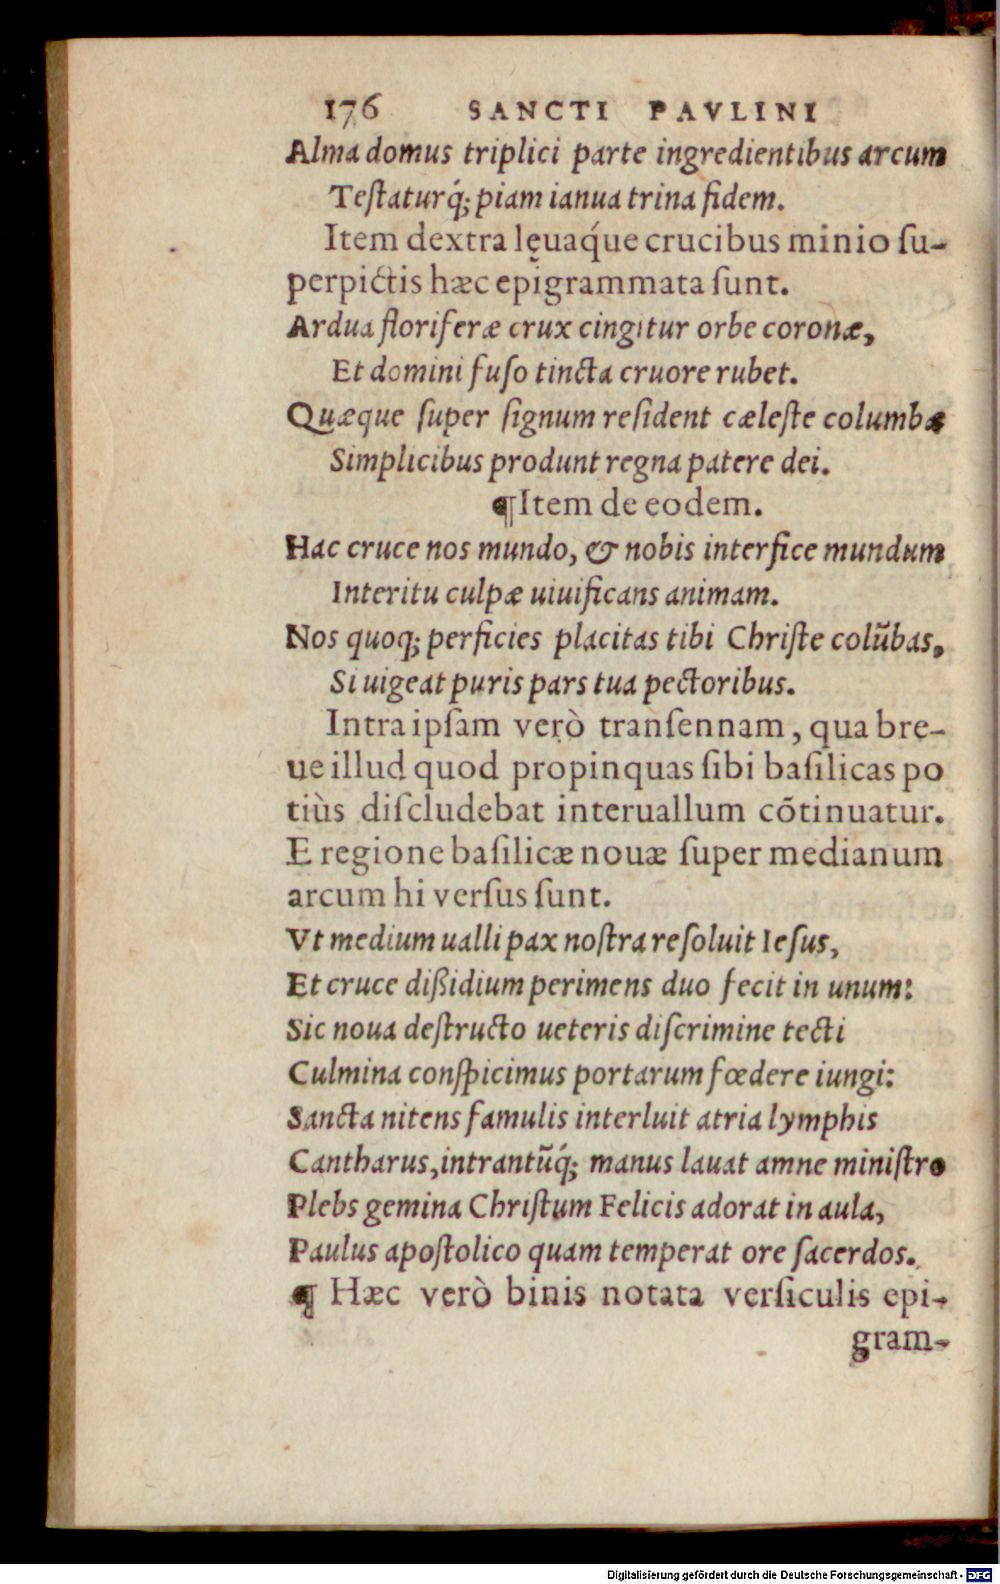 176 SANCTI PAVLINI
Alma domus triplici parte ingredientibus arcum
Teſtaturq́; piam ianua trina fidem.
Item dextra lęuaq́ue crucibus minio ſu-
perpictis hæc epigrammata ſunt.
Ardua floriferæ crux cingitur orbe coronæ,
Et domini fuſo tincta cruore rubet.
Quæque ſuper ſignum reſident cæleſte columbæ
Simplicibus produnt regna patere dei.
¶Item de eodem.
Hac cruce nos mundo, & nobis interfice mundum
Interitu culpæ uiuificans animam.
Nos quoq; perficies placitas tibi Chriſte colũbas,
Si uigeat puris pars tua pectoribus.
Intra ipſam verò tranſennam, qua bre-
ue illud quod propinquas ſibi baſilicas po
tiùs diſcludebat interuallum cõtinuatur.
E regione baſilicæ nouæ ſuper medianum
arcum hi verſus ſunt.
Vt medium ualli pax noſtra reſoluit Ieſus,
Et cruce dißidium perimens duo fecit in unum:
Sic noua deſtructo ueteris diſcrimine tecti
Culmina conſpicimus portarum fœdere iungi:
Sancta nitens famulis interluit atria lymphis
Cantharus, intrantũq́; manus lauat amne miniſtro
Plebs gemina Chriſtum Felicis adorat in aula,
Paulus apoſtolico quam temperat ore ſacerdos.
¶ Hæc verò binis notata verſiculis epi-
gram-
Digitalisierung gefördert durch die Deutsche Forschungsgemeinschaft - DFG